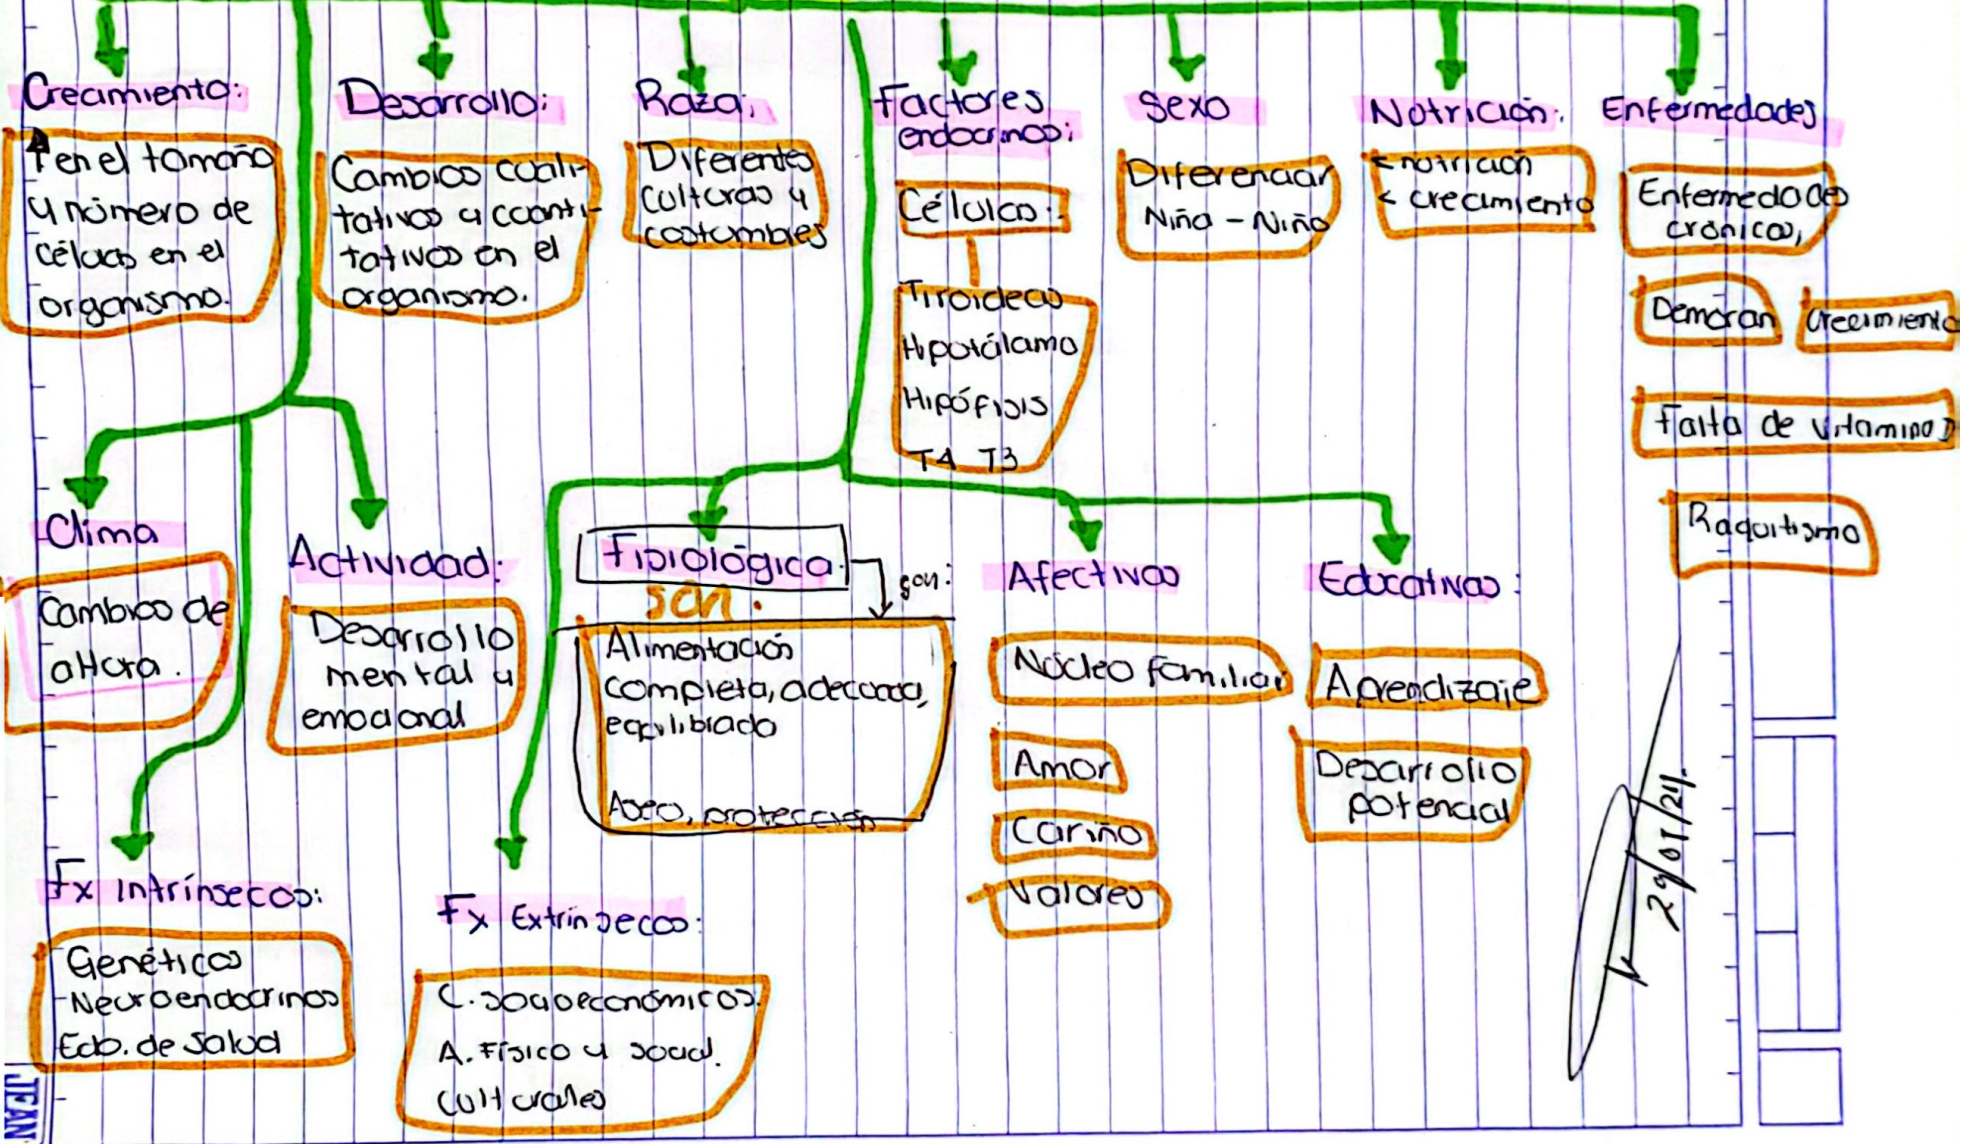 Crecimiento:
↑ en el tamaño
y número de
células en el
organismo.
Desarrollo:
Cambios cuali-
tativos y cuanti-
tativos en el
organismo.
Raza:
Diferentes
culturas y
costumbres
Factores
endocrinos:
Células:
Tiroideas
Hipotálamo
Hipófisis
T4 T3
Sexo
Diferenciar
Niña - Niño
Nutrición:
< nutrición
< crecimiento
Enfermedades
Enfermedades
crónicas,
Demoran
crecimiento
Falta de vitamina D
Raquitismo
Clima
Cambios de
altura.
Actividad:
Desarrollo
mental y
emocional
Fisiológica:
son:
son.
Alimentación
completa, adecuada,
equilibrada
Aseo, protección
Afectivas
Núcleo familiar
Amor
Cariño
Valores
Educativas:
Aprendizaje
Desarrollo
potencial
Fx Intrínsecos:
Genéticos
-Neuroendocrinos
Edo. de Salud
Fx Extrínsecos:
C. socioeconómicos.
A. Físico y social.
Culturales
29/01/21.
JEAN